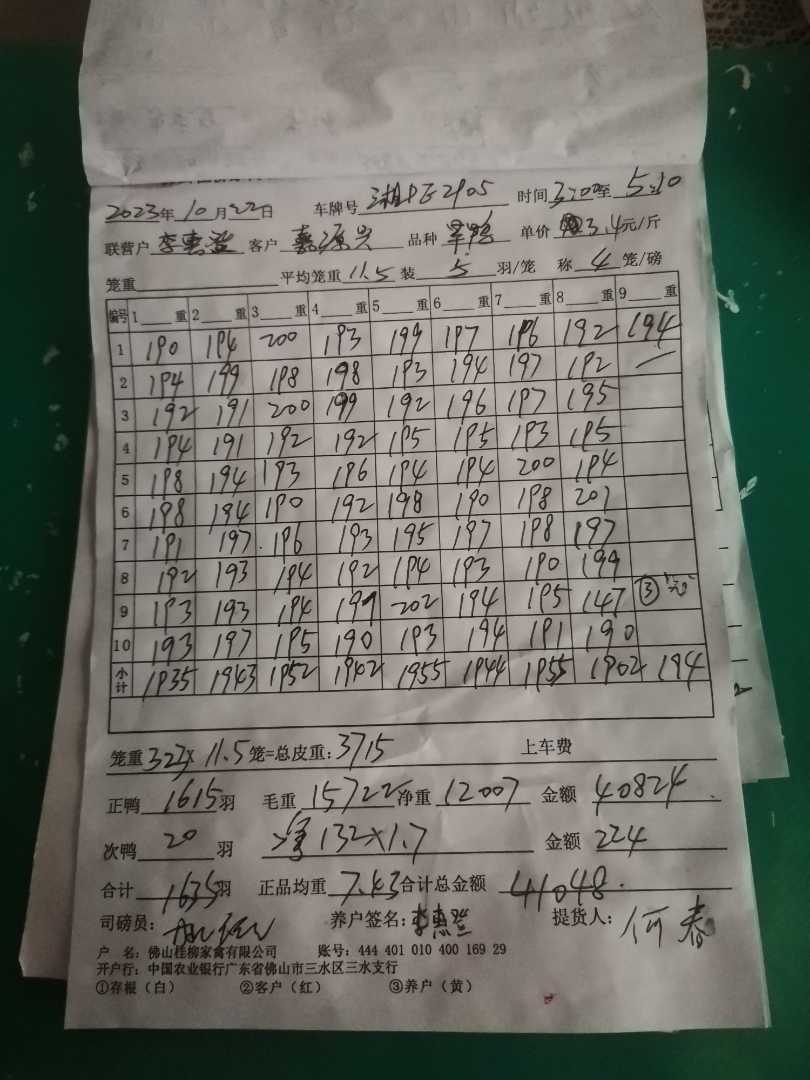 2023年 10月 22日 车牌号 湘PE2905 时间 3:00至 5:10
联营户 李惠澄 客户 嘉源兴 品种 旱鸭 单价 3.4元/斤
笼重 平均笼重 11.5 装 5 羽/笼 称 4 笼/磅
编号 1 重 2 重 3 重 4 重 5 重 6 重 7 重 8 重 9 重
1 190 194 200 193 199 197 196 192 194
2 194 199 198 198 193 194 197 192 —
3 192 191 200 199 192 196 197 195
4 194 191 192 192 195 195 193 195
5 198 194 193 196 194 194 200 194
6 198 194 190 192 198 190 198 201
7 191 197 196 193 195 197 198 197
8 192 193 194 192 194 193 190 199
9 193 193 194 197 202 194 195 147 ③
10 193 197 195 190 193 194 191 190
小计 1935 1943 1952 1942 1955 1944 1955 1902 194
笼重 323x 11.5 笼=总皮重: 3715 上车费
正鸭 1615羽 毛重 15722 净重 12007 金额 40824
次鸭 20 羽 132x1.7 金额 224
合计 1635羽 正品均重 7.43 合计总金额 41048.
司磅员: 养户签名: 李惠澄 提货人: 何春
户 名: 佛山桂柳家禽有限公司 账号: 444 401 010 400 169 29
开户行: 中国农业银行广东省佛山市三水区三水支行
①存根（白） ②客户（红） ③养户（黄）